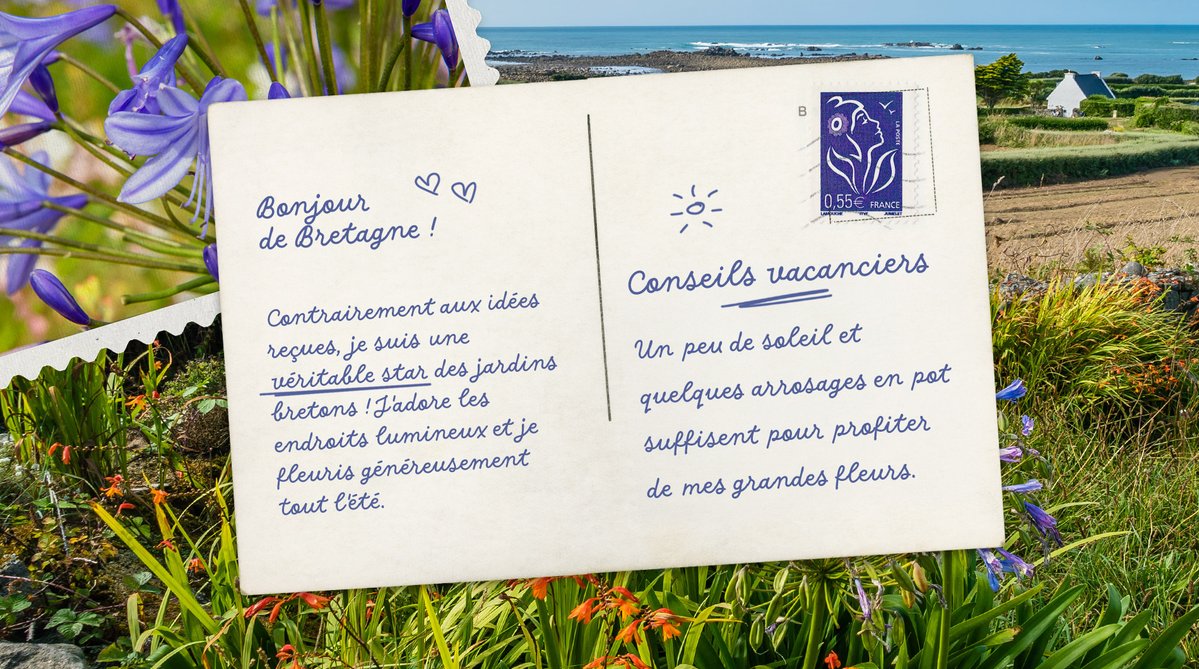 Bonjour
de Bretagne !
Contrairement aux idées
reçues, je suis une
véritable star des jardins
bretons ! J'adore les
endroits lumineux et je
fleuris généreusement
tout l'été.
B
LA POSTE
0,55€ FRANCE
LAMOUCHE ITVF JUMELET
Conseils vacanciers
Un peu de soleil et
quelques arrosages en pot
suffisent pour profiter
de mes grandes fleurs.